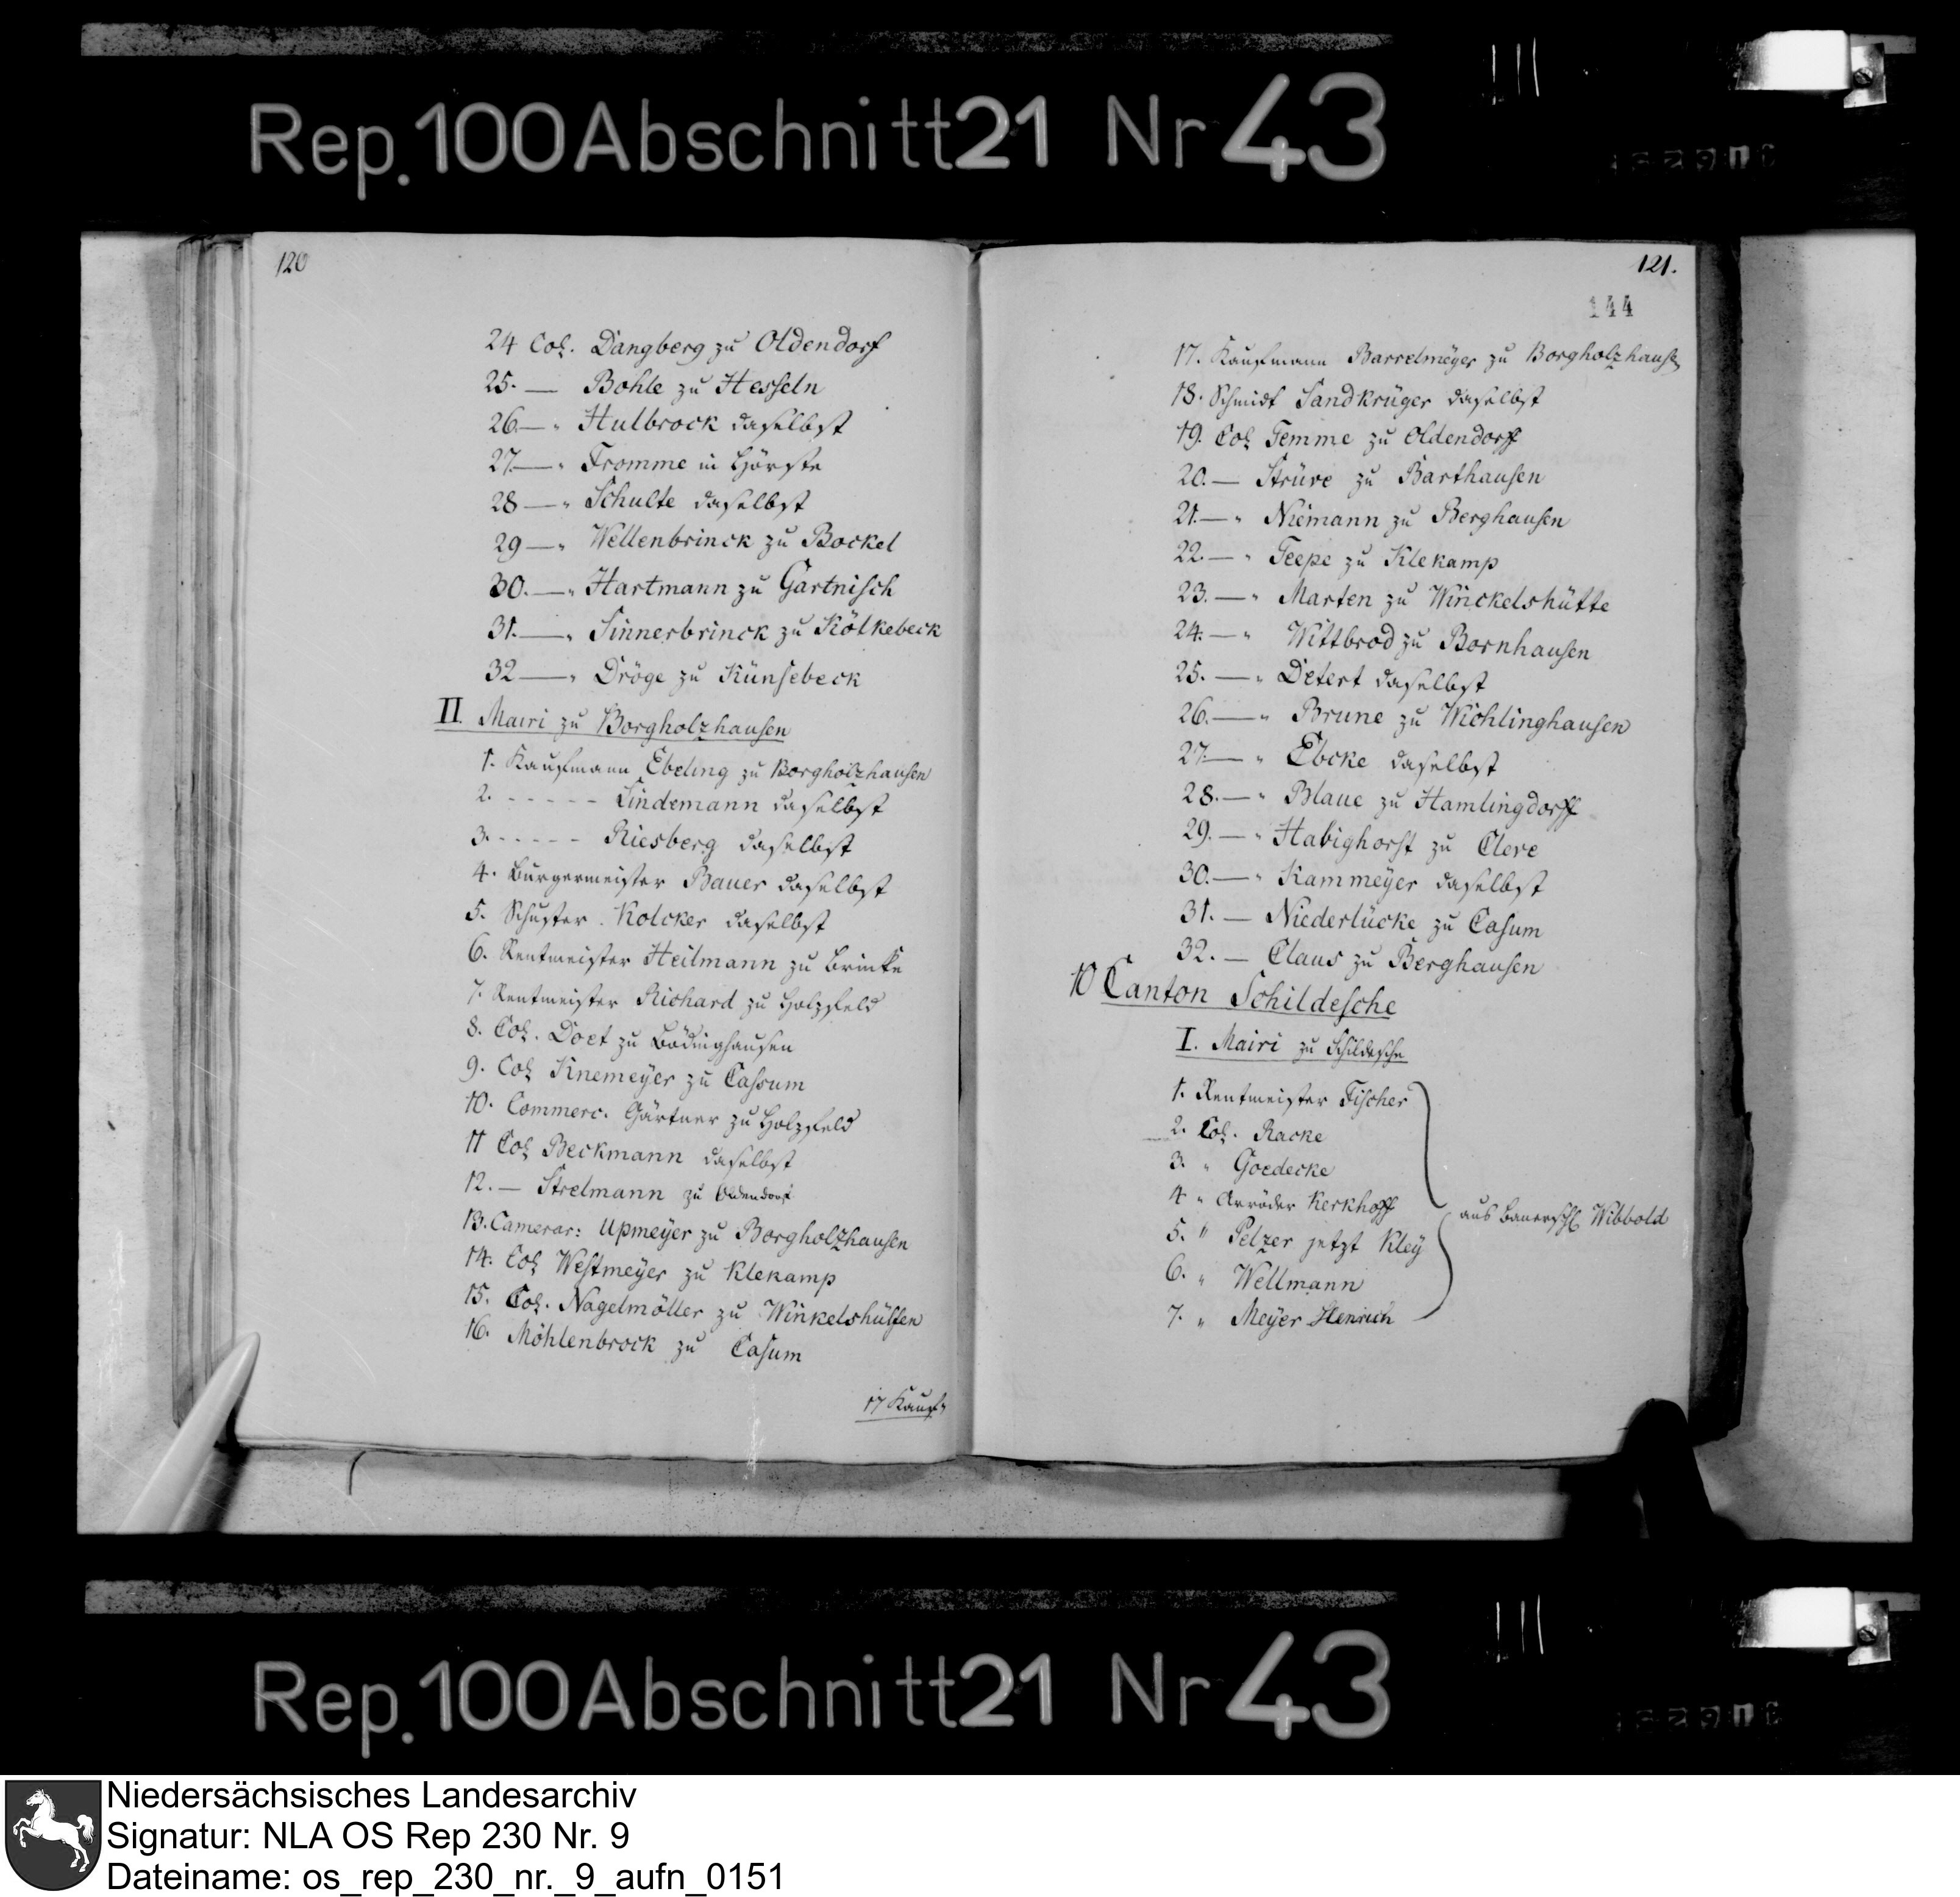 Rep. 100 Abschnitt 21 Nr 43
120
24 Col. Dangberg zu Oldendorf
25. — Bohle zu Hesseln
26. — " Hulbrock daselbst
27. — " Fromme in Hörste
28 — " Schulte daselbst
29 — " Wellenbrinck zu Bockel
30. — " Hartmann zu Gartnisch
31. — " Sinnerbrinck zu Kölkebeck
32 — " Dröge zu Künsebeck
II. Mairi zu Borgholzhausen
1. Kaufmann Ebeling zu Borgholzhausen
2. - - - - - Lindemann daselbst
3. - - - - - Riesberg daselbst
4. Bürgermeister Bauer daselbst
5. Schuster Kolcker daselbst
6. Rentmeister Heilmann zu Brinke
7. Rentmeister Richard zu Holzfeld
8. Col. Doet zu Bödinghausen
9. Col Knemeÿer zu Cassum
10. Commerc. Gärtner zu Holzfeld
11 Col Beckmann daselbst
12. — Strelmann zu Oldendorf
13. Camerar: Upmeÿer zu Borgholzhausen
14. Col Westmeÿer zu Klekamp
15. Col. Nagelmöller zu Winkelshütten
16. Möhlenbrock zu Casum
17 Kauf-
121.
144
17. Kaufmann Barrelmeÿer zu Borgholzhausen
18. Schmidt Sandkrüger daselbst
19. Col Temme zu Oldendorff
20. — Strüve zu Barthausen
21. — " Niemann zu Berghausen
22. — " Teepe zu Klekamp
23. — " Marten zu Winckelshütte
24. — " Wittbrod zu Bornhausen
25. — " Detert daselbst
26. — " Brune zu Wichlinghausen
27. — " Ebcke daselbst
28. — " Blaue zu Hamlingdorff
29. — " Habighorst zu Cleve
30. — " Kammeÿer daselbst
31. — Niederlücke zu Casum
32. — Claus zu Berghausen
10 Canton Schildesche
I. Mairi zu Schildesche
1. Rentmeister Fischer
2. Col. Racke
3. " Goedecke
4 " Arröder Kerkhoff
aus Bauerschf. Wibbold
5. " Pelzer jetzt Kleÿ
6. " Wellmann
7. " Meÿer Henrich
Rep. 100 Abschnitt 21 Nr 43
Niedersächsisches Landesarchiv
Signatur: NLA OS Rep 230 Nr. 9
Dateiname: os_rep_230_nr._9_aufn_0151